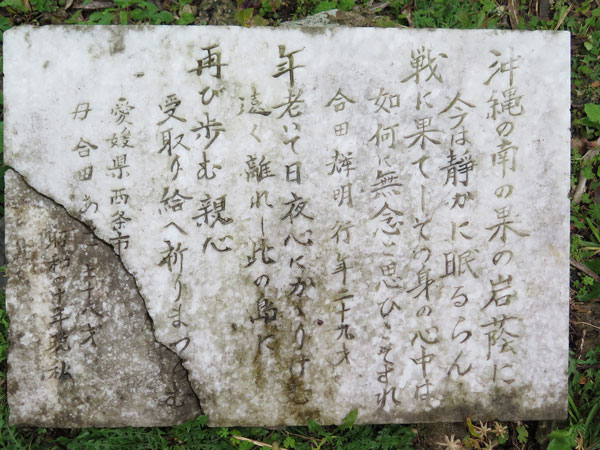 沖縄の南の果の岩蔭に
今は静かに眠るらん
戦に果てしその身の心中は
如何に無念と思ひこそすれ
合田輝明 行年二十九才
年老いて日夜心にかゝりけむ
遠く離れし此の島に
再び歩む親心
受取り給へ祈りまつらむ
愛媛県西条市
母 合田 十八才
昭和 十年